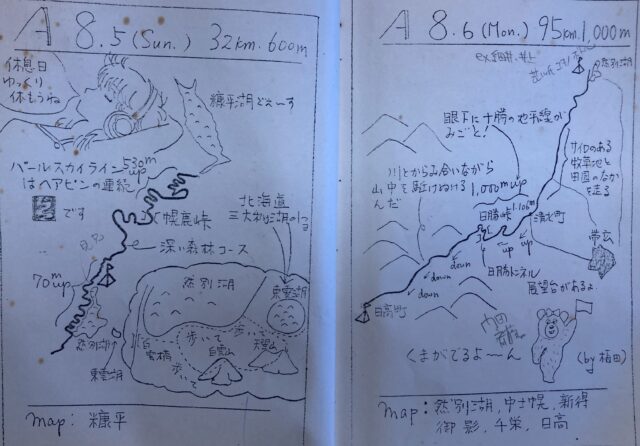 A 8.5 (Sun.) 32km. 600m
休息日
ゆっくり
休もうね
糠平湖どぇーす
パールスカイライン 530mup
はヘアピンの連続!
です
幌鹿峠
深い森林コース
北海道
三大秘湖の1つ
70mup
然別湖
東雲湖
白雲橋
歩いて
白雲山
歩いて
天望山
歩いて
然別湖
東雲湖
map: 糠平
A 8.6 (Mon.) 95km. 1,000m
然別湖
眼下に十勝の地平線が
みごと!
サイロのある
牧草地と
田園のなか
を走る
川とからみ合いながら
山中を駆けぬける
んだ
1,000mup
日勝峠 1,106m
清水町
帯広
up
up
down
down
down
日勝トンネル
展望台があるよ
日高町
くまがでるよ〜ん
(by 柏田)
map: 然別湖, 中士幌, 新得
御影, 千栄, 日高